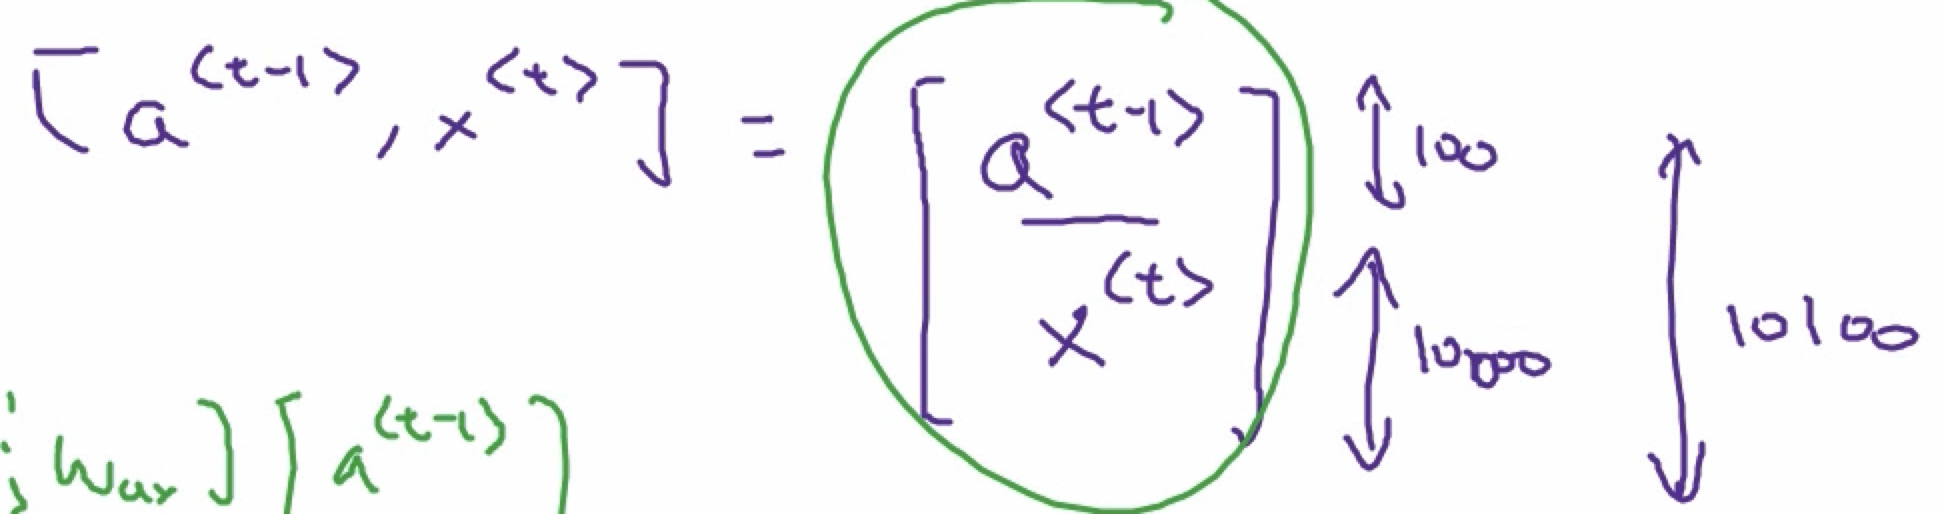 [a<t-1>, x<t>] = [a<t-1> 100
x<t>] 10,000 10100
; Wax] [a<t-1>]